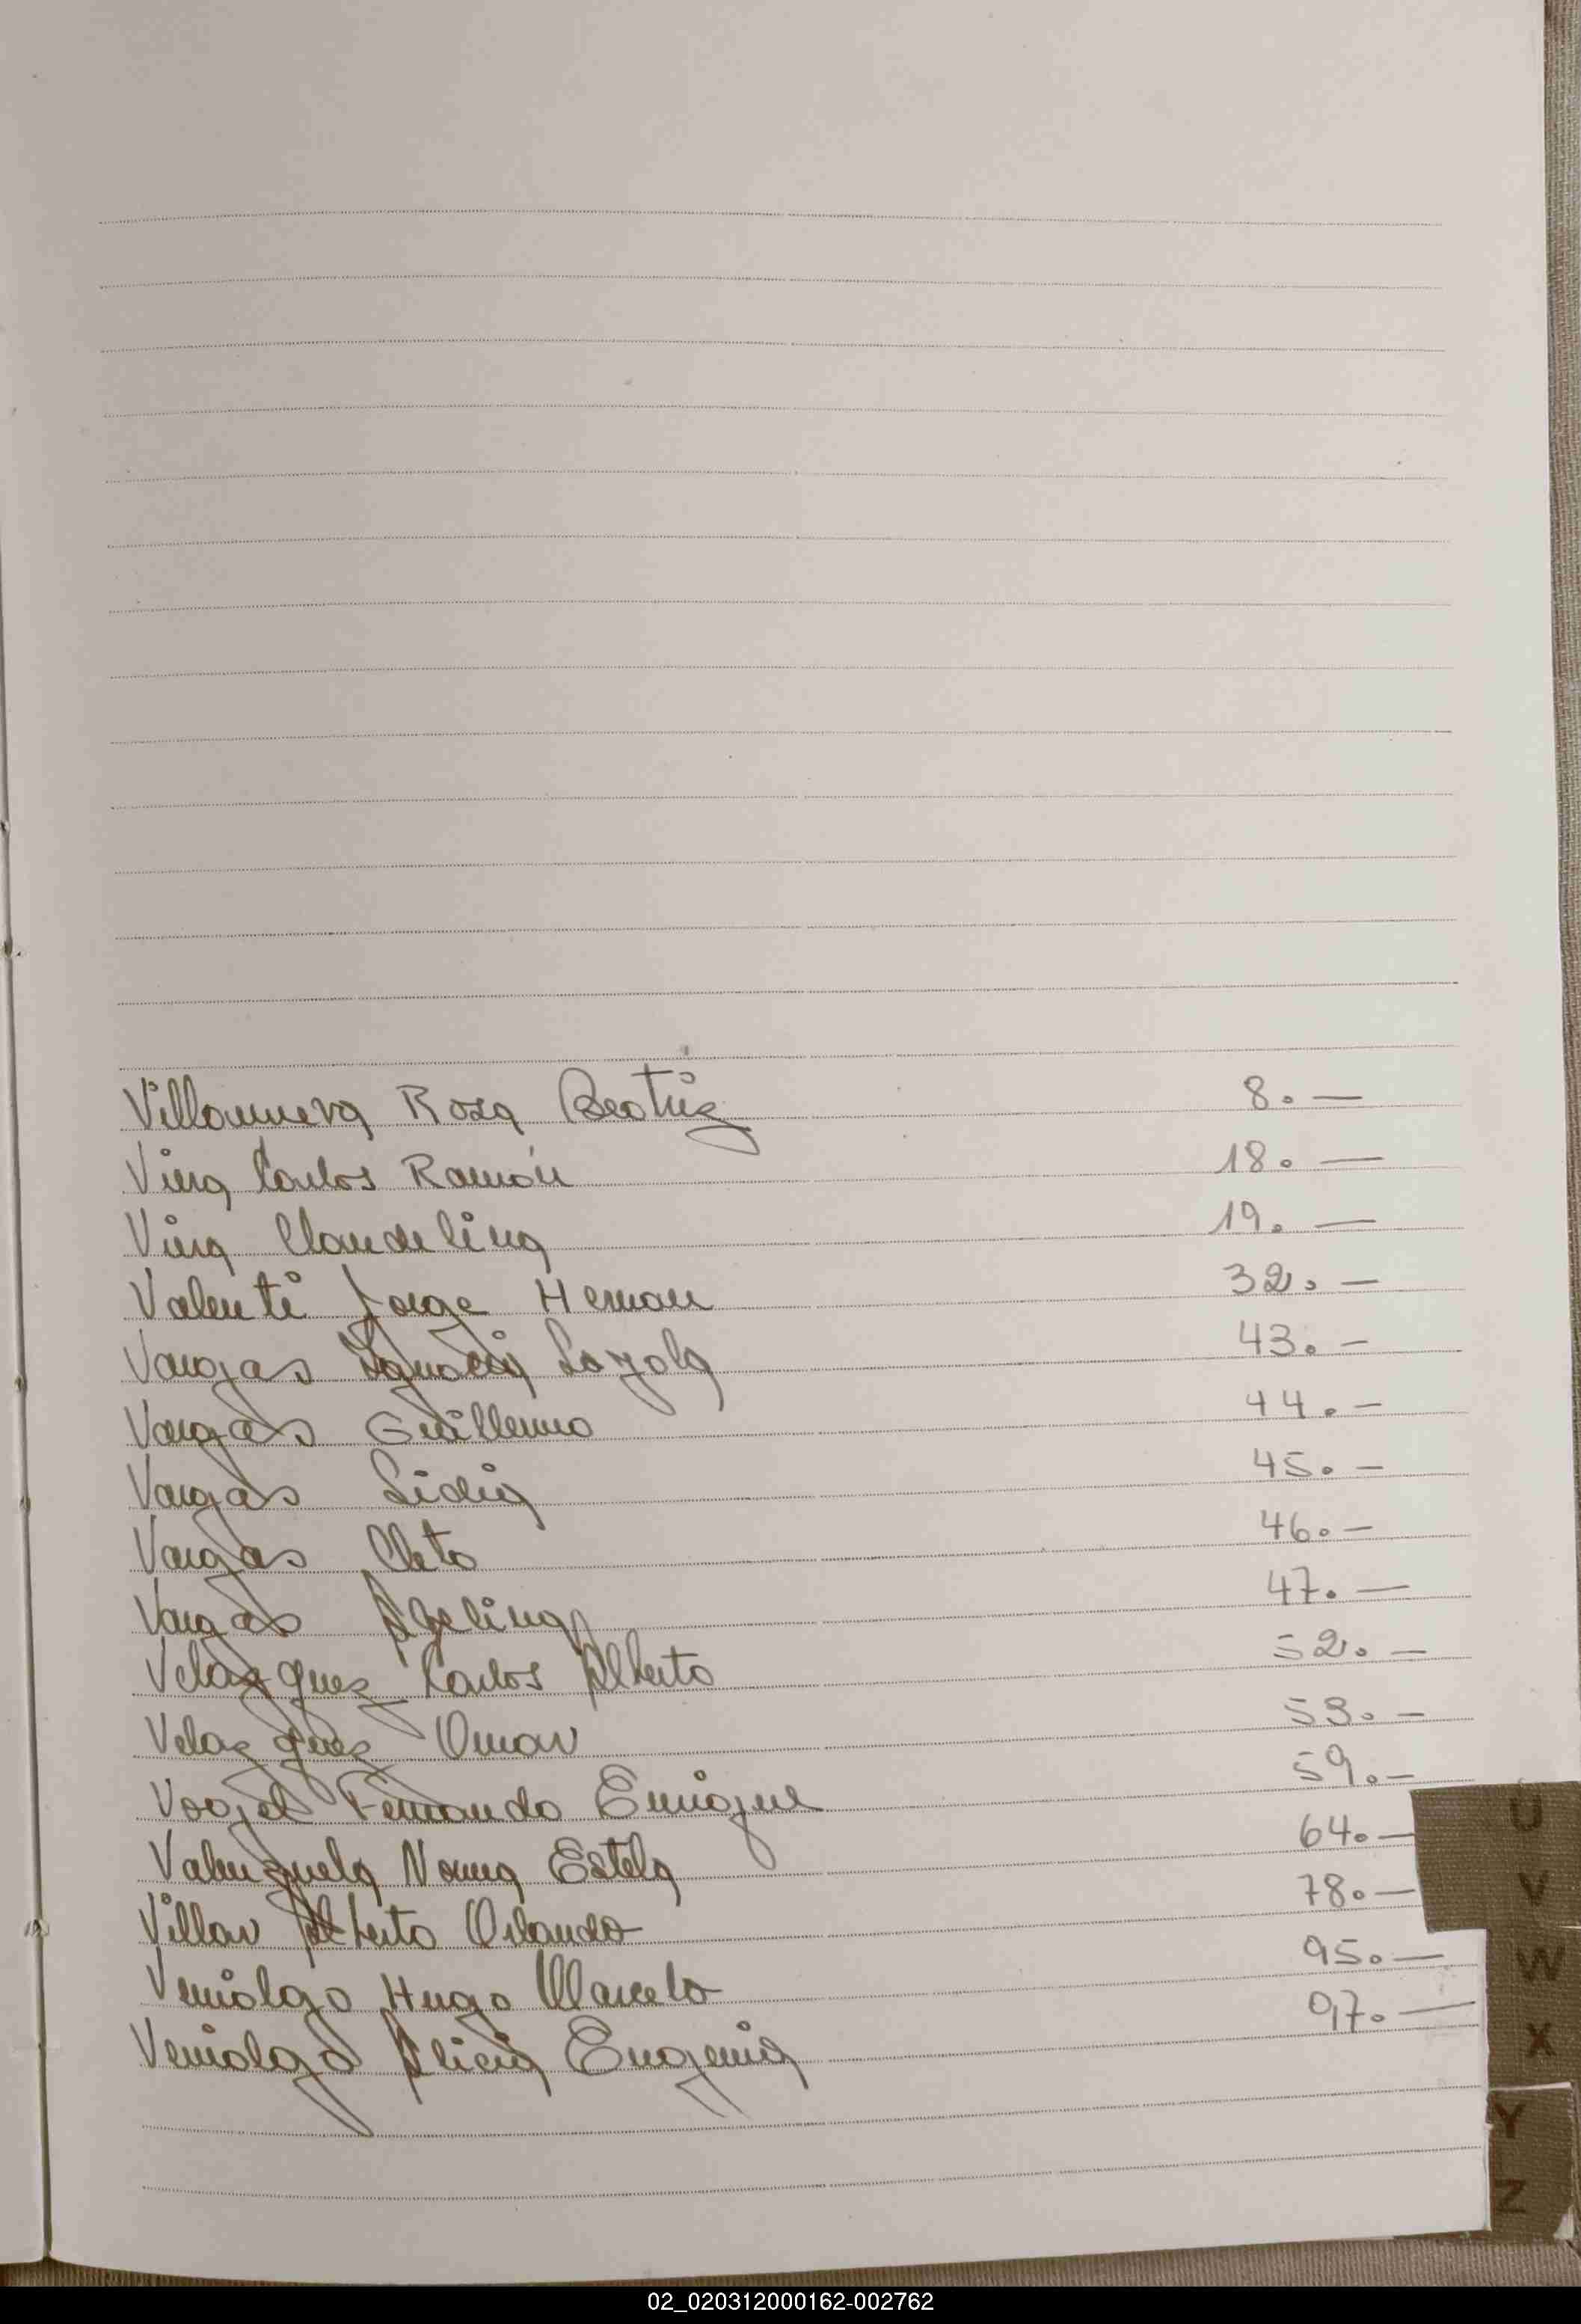 Villanueva Rosa Beatriz 8.—
Viera Carlos Ramón 18.—
Viera Claudelina 19.—
Valenti Jorge Hernan 32.—
Vargas Ignacia Loyola 43.—
Vargas Guillermo 44.—
Vargas Lidia 45.—
Vargas Cleto 46.—
Vargas Avelina 47.—
Velazquez Carlos Alberto 52.—
Velazquez Omar 53.—
Voogel Fernando Enrique 59.—
Valenzuela Norma Estela 64.—
Villar Alberto Orlando 78.—
Hugo Marcelo 95.—
Alicia Eugenia 97.—
U
V
W
X
Y
Z
02_020312000162-002762